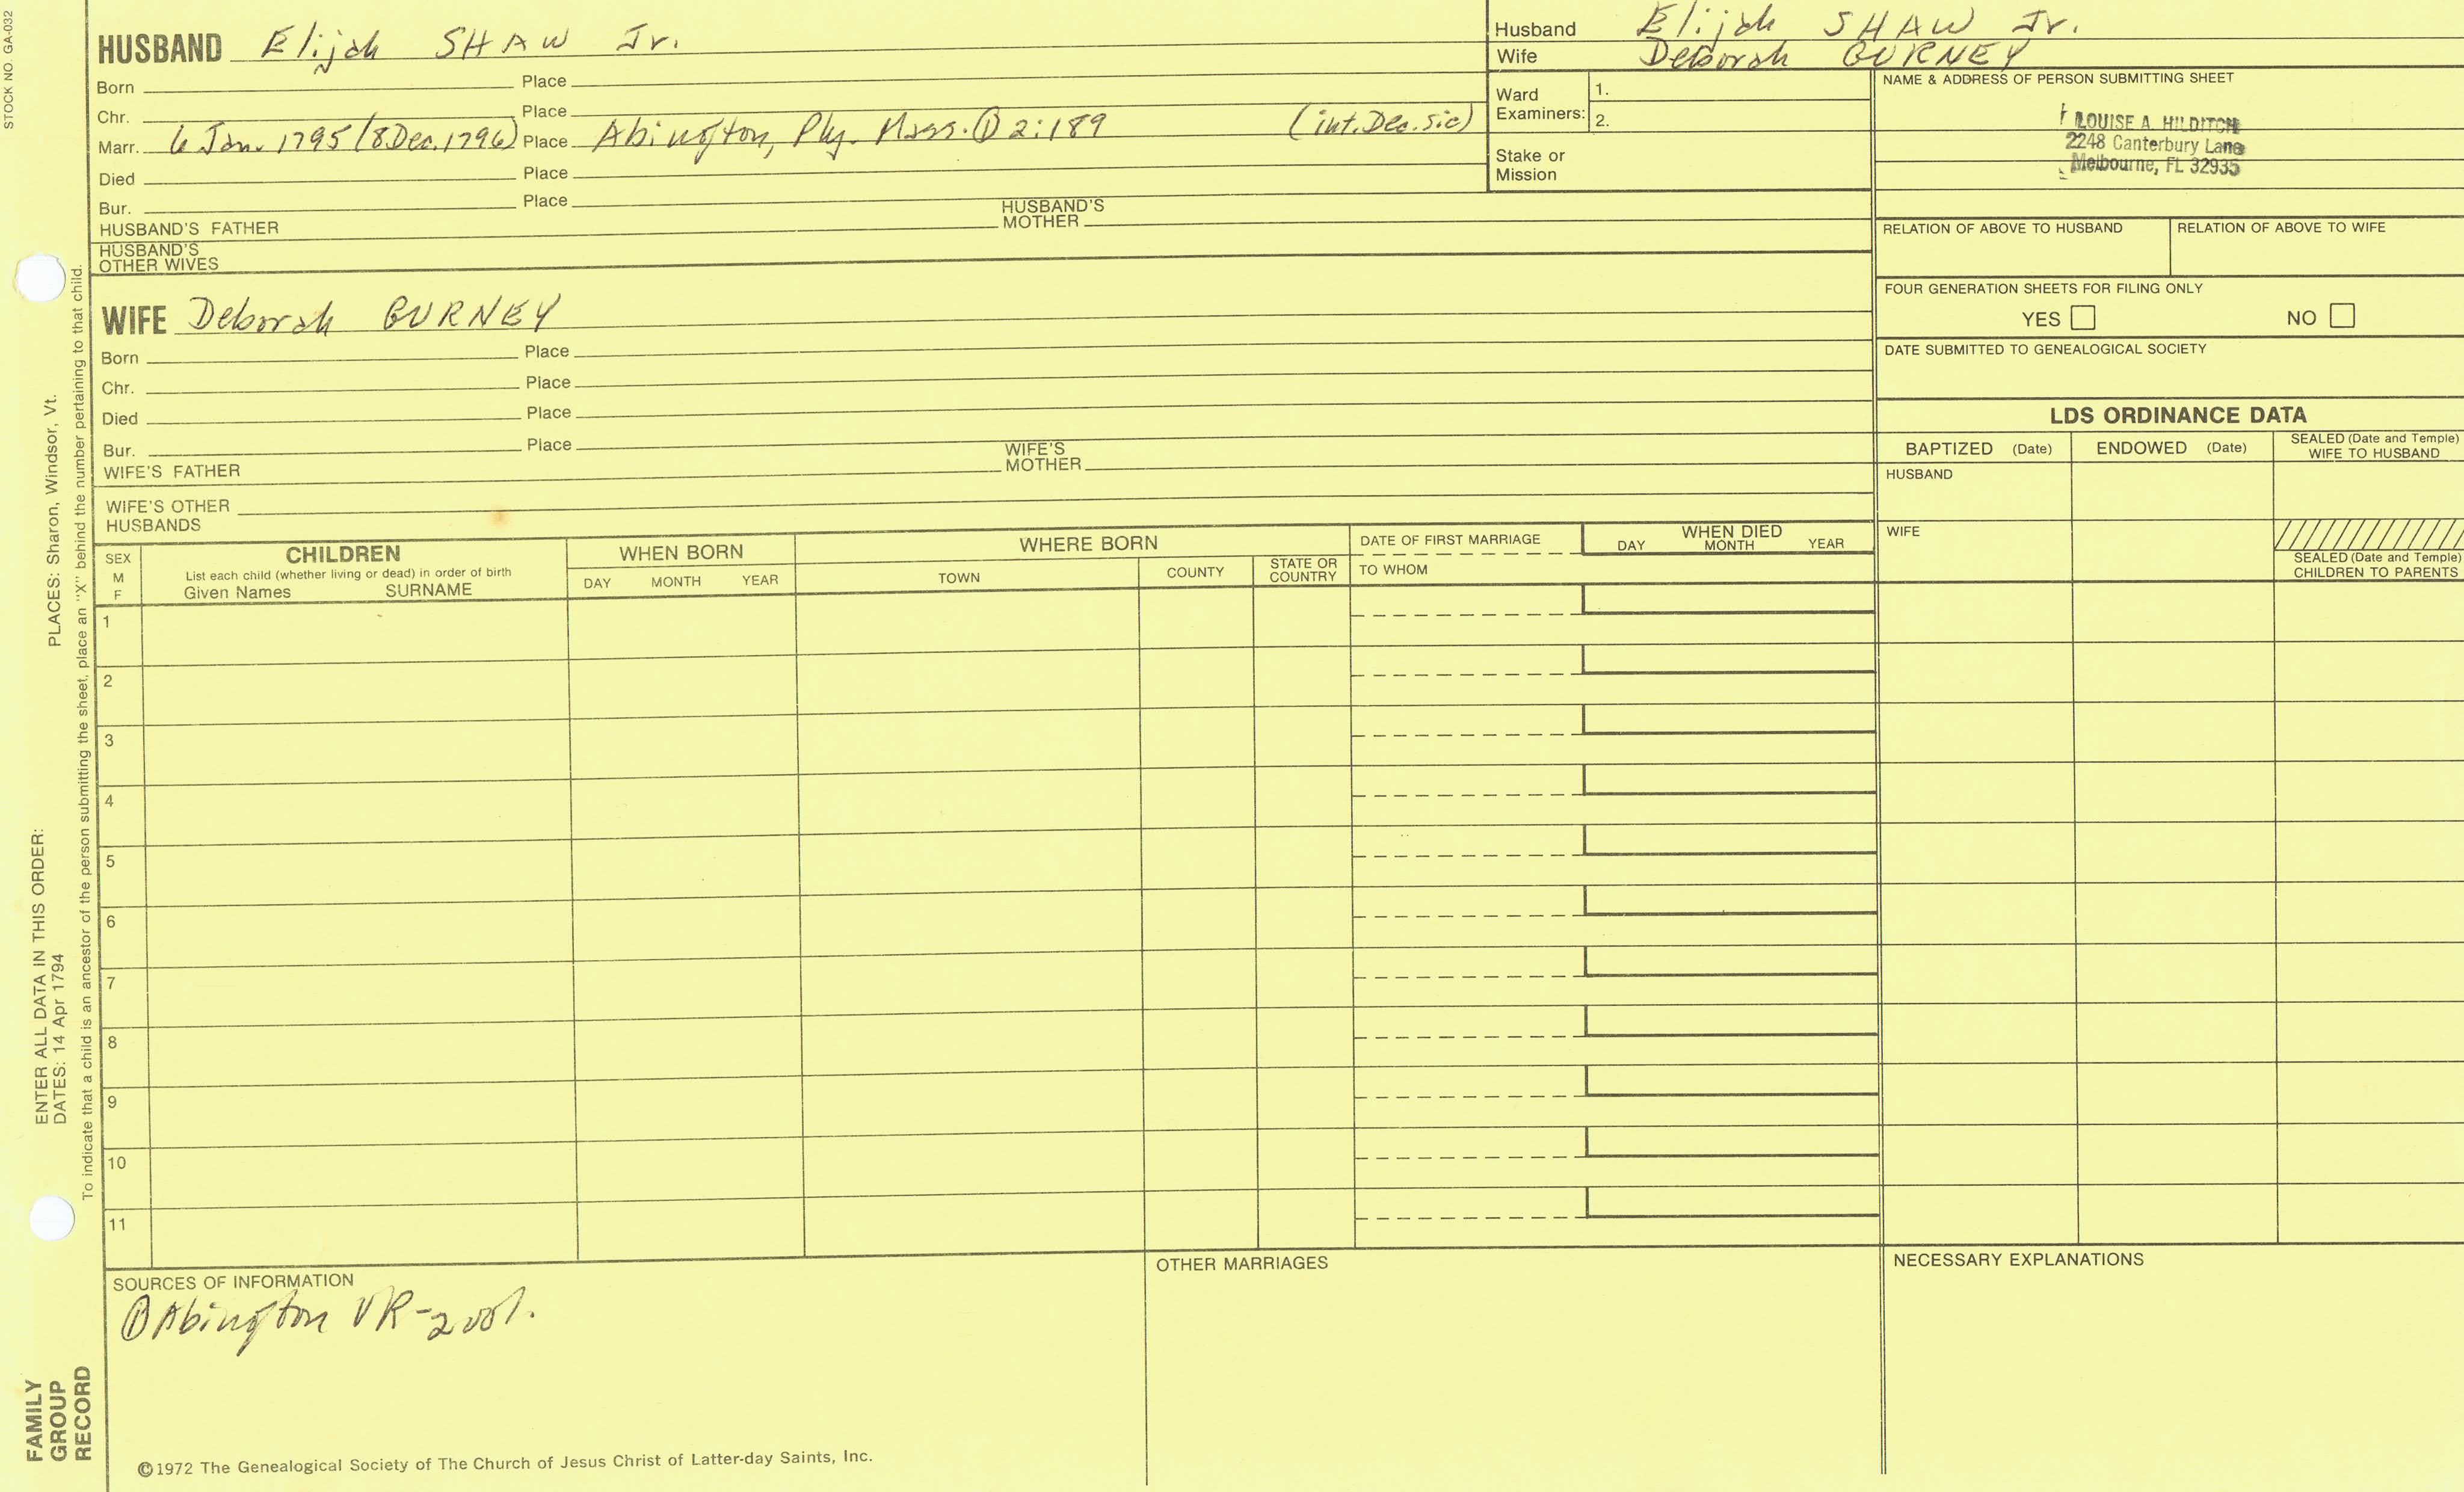 STOCK NO. GA-032
HUSBAND Elijah SHAW Jr.
Born Place
Chr. Place
Marr. 6 Jan. 1795 (8 Dec. 1796) Place Abington, Ply. Mass. ① 2:189 (int. Dec. sic)
Died Place
Bur. Place
HUSBAND'S FATHER HUSBAND'S MOTHER
HUSBAND'S OTHER WIVES
Husband Elijah SHAW Jr.
Wife Deborah GURNEY
Ward Examiners: 1.
2.
Stake or Mission
NAME & ADDRESS OF PERSON SUBMITTING SHEET
LOUISE A. HILDITCH
2248 Canterbury Lane
Melbourne, FL 32935
RELATION OF ABOVE TO HUSBAND RELATION OF ABOVE TO WIFE
FOUR GENERATION SHEETS FOR FILING ONLY
YES NO
DATE SUBMITTED TO GENEALOGICAL SOCIETY
WIFE Deborah GURNEY
Born Place
Chr. Place
Died Place
Bur. Place
WIFE'S FATHER WIFE'S MOTHER
WIFE'S OTHER HUSBANDS
LDS ORDINANCE DATA
BAPTIZED (Date) ENDOWED (Date) SEALED (Date and Temple) WIFE TO HUSBAND
HUSBAND
WIFE
SEALED (Date and Temple) CHILDREN TO PARENTS
SEX M F
CHILDREN
List each child (whether living or dead) in order of birth
Given Names SURNAME
WHEN BORN
DAY MONTH YEAR
WHERE BORN
TOWN COUNTY STATE OR COUNTRY
DATE OF FIRST MARRIAGE
TO WHOM
WHEN DIED
DAY MONTH YEAR
1
2
3
4
5
6
7
8
9
10
11
SOURCES OF INFORMATION
① Abington VR-2vol.
OTHER MARRIAGES
NECESSARY EXPLANATIONS
©1972 The Genealogical Society of The Church of Jesus Christ of Latter-day Saints, Inc.
FAMILY GROUP RECORD
ENTER ALL DATA IN THIS ORDER:
DATES: 14 Apr 1794
PLACES: Sharon, Windsor, Vt.
To indicate that a child is an ancestor of the person submitting the sheet, place an "X" behind the number pertaining to that child.